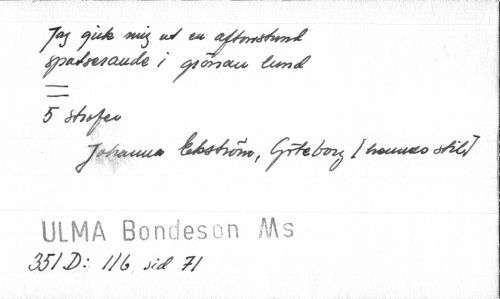 Jag gick mig ut en aftonstund
spatserande i grönan lund
5 strofer
Johanna Ekström, Göteborg [hennes stil]
ULMA Bondeson Ms
351 D: 116 sid 71